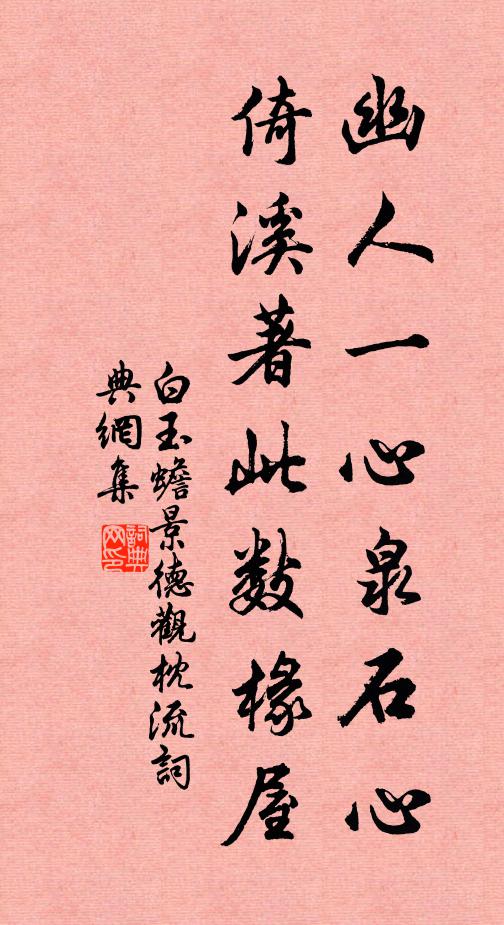 幽人一心泉石心
倚溪著此数椽屋
白玉蟾景德觀枕流詞
典網集
詞典
网印